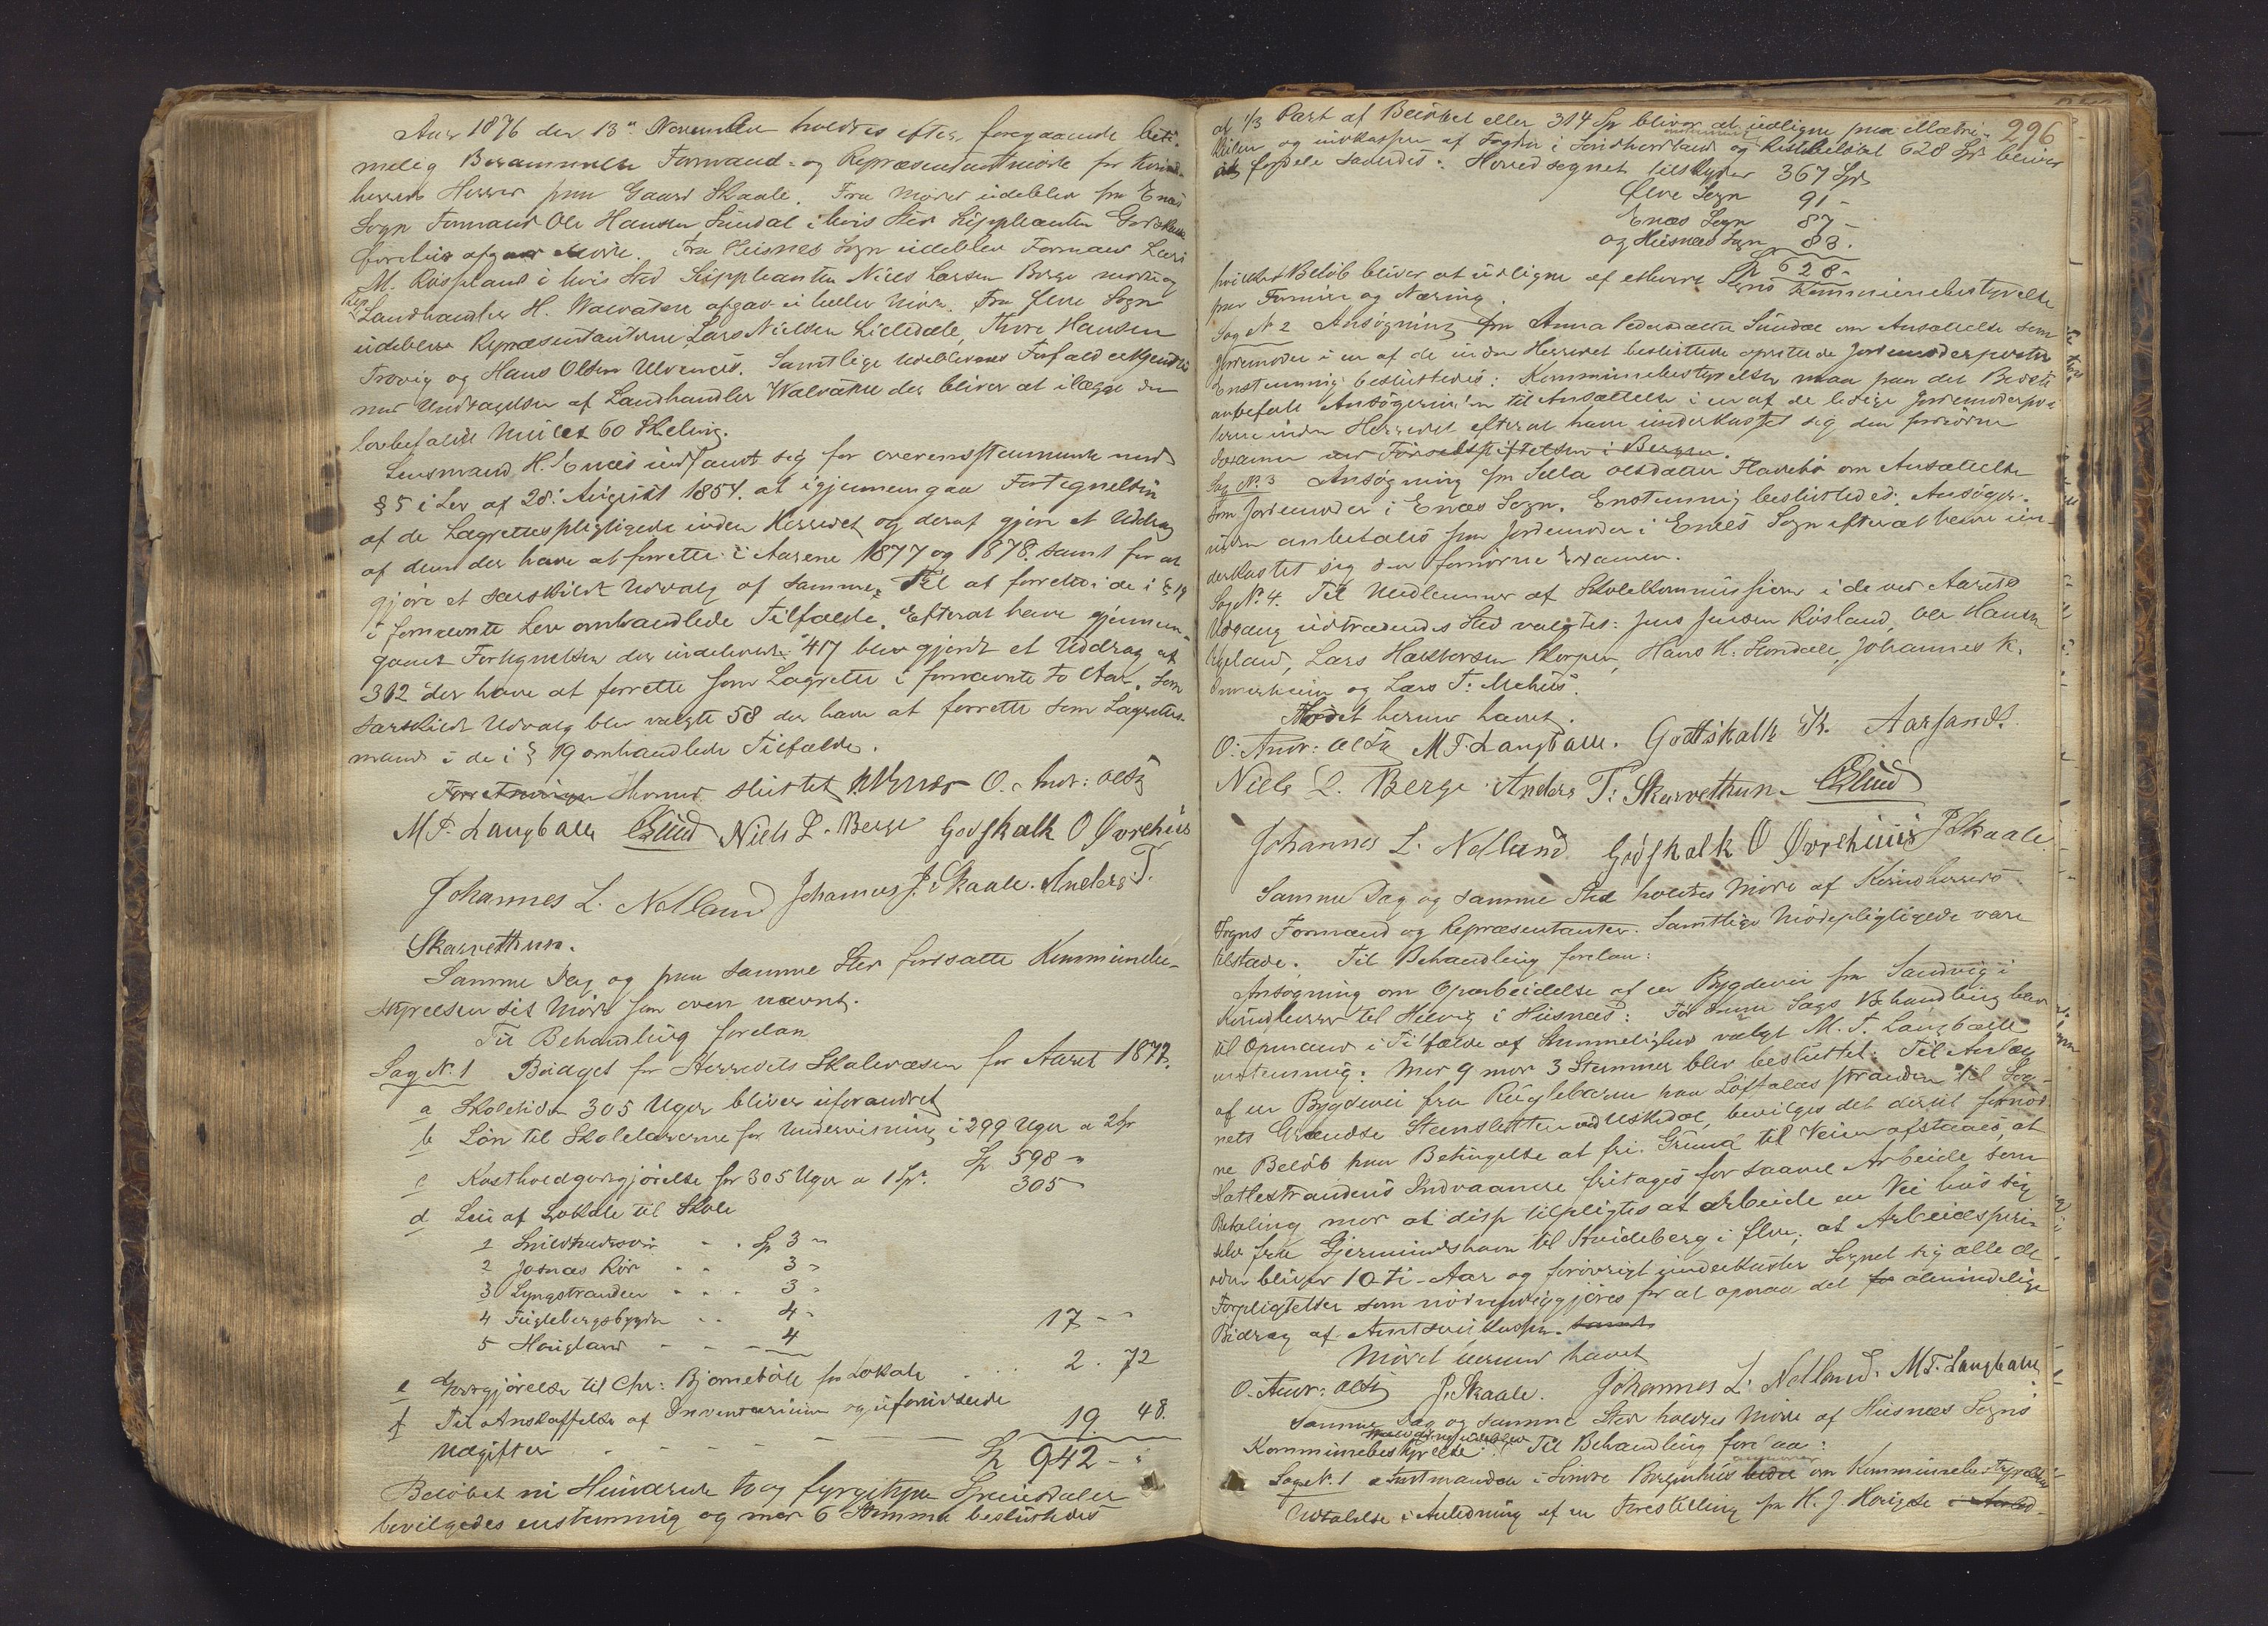 Aar 1876 den 13de November holdtes efter foregaaende beti-
melig Berammelse Formand- og Repræsentantmöde for Kvind-
herreds Herred paa Gaard Skaale. Fra Mödet udeblev fra Enæs
Sogn Formand Ole Hansen Sundal i hvis Sted Suppleanten Godskalk
Övrehuus afgav Möde. Fra Huusnæs Sogn udeblev Formand Lars
M. Röspland i hvis Sted Suppleanten Niels Larsen Berge mödte og
Rep. Landhandler H. Walvatne afgav ei heller Möde. Fra Ölve Sogn
udeblev Repræsentanterne Lars Nielsen Liledale, Thore Hansen
Trovig og Hans Olsen Ulvenæs. Samtlige Udeblevnes Forfald erkjendtes
med Undtagelse af Landhandler Walvatne der bliver at ilægge den
lovbefalede Mulct 60 Skeling.
Lensmand H. Enæs indfandt sig for overensstemmende med
§ 5 i Lov af 28de August 1854. at igjennemgaa Fortegnelsen
af de Lagrettespligtigede inden Herredet og deraf gjøre et Uddrag
af dem der have at forrette i Aarene 1877 og 1878. samt for at
gjøre et særskildt Udvalg af samme, Til at forrette i de i § 19
i fornævnte Lov omhandlede Tilfælde. Efterat have gjennem-
gaaet Fortegnelsen der indeholdt 417 blev gjordt et Uddrag af
312 der have at forrette som Lagrette i fornævnte to Aar. Som
særskildt Udvalg blev valgte 58 der have at forrette som Lagrettes-
mænd i de i § 19 omhandlede Tilfælde.
Forretningen Hermed sluttet HEnæs O. Andr: Olsen
M T. Langballe CSund Niels L. Berge Godskalk O Övrehuus
Johannes L. Nelland Johannes J. Skaale. Anders T.
Skarvethun.
Samme Dag og paa samme Sted fortsatte Kommunebe-
styrelsen sit Möde som oven nævnt.
Til Behandling forelaa
Sag N. 1 Budget for Herredets Skolevæsen for Aaret 1877.
a Skoletiden 305 Uger bliver uforandret
b Lön til Skolelærerne for Undervisning i 299 Uger a 2 Sp Sp 598 -
c Kostholdgodtgjörelse for 305 Uger a 1 Sp. 305 -
d Leie af Lokale til Skole
1 - - Sp 3 -
2 Josnæs Rör - - 3 -
3 Lyngstranden - - - 3 -
4 Fuglebergsbygden - - 4 -
5 Hougland - - - 4 17 - -
e Godtgjörelse til Chr: Bjørnebóle for Lokale . . . 2 . 72
f Til Anskaffelse af Inventarium og uforudseede
Udgifter - - - - 19. 48.
Sp 942 - .
Belöbet ni Hundrede to og fyrgetyve Speciedaler
bevilgedes enstemmig og med 6 Stemmer besluttedes
296
at 1/3 Part af Belöbet eller 314 Sp bliver at udligne paa Matri-
kulen og indkasseres af Fogden i Söndhordland og Restbelöbet 628 Sp bliver
at fordele saaledes: Hovedsognet tilskyder 367 Sp
Ölve Sogn 91 -
Enæs Sogn 87 -
og Huusnæs Sogn 83.
Sp 628 -
hvilket Belöb bliver at udligne af ethvert Sogns Kommunebestyrelse
paa Formue og Næring.
Sag N. 2 Ansögning fra Anna Pedersdatter Sundal om Ansættelse som
Jordemoder i en af de inden Herredet besluttede oprettede Jordemoderposter
Enstemmig besluttedes: Kommunebestyrelsen maa paa det Bedste
anbefale Ansögerinden til Ansættelse i en af de ledige Jordemoderpo-
sterne inden Herredet efterat have underkastet sig den fornödne
Examen ved Födselsstiftelsen i Bergen.
Sag N. 3 Ansögning fra Sella Olsdatter Flatebö om Ansættelse
som Jordemoder i Enæs Sogn. Enstemmig besluttedes: Ansöger-
inden anbefales som Jordemoder i Enæs Sogn efterat have un-
derkastet sig den fornödne Examen.
Sag N. 4. Til Medlemmer af Skolekommissionen i de ved Aarets
Udgang udtrædendes Sted valgtes: Jens Jensen Rösland, Ole Hansen
Ugeland, Lars Haktorsen Skorpen, Hans H. Sundal, Johannes K.
Omvikheim og Lars T. Mehuus.
Mödet hermed hævet.
O. Andr: Olsen M T. Langballe. Godtskalk K. Aarsand.
Niels L. Berge Anders T: Skarvethun CSund
Johannes L. Nelland Godskalk O Övrehuus J Skaale.
Samme Dag og samme Sted holdtes Möde af Kvindherreds
Sogns Formænd og Repræsentanter. Samtlige Mödepligtigede vare
tilstede. Til Behandling forelaa:
Ansögning om Oparbeidelse af en Bygdevei fra Sandvig i
Kvindherred til Hilvig i Huusnæs: För denne Sags Behandling blev
til Opmand i Tilfælde af Stemmelighed valgt M. T. Langballe
enstemmig: Med 9 mod 3 Stemmer blev besluttet: Til Anlæg
af en Bygdevei fra Ruglebarm paa Löfallsstranden til Sog-
nets Grændse Stensletten ved Uskedal, bevilges det dertil fornöd-
ne Belöb paa Betingelse at fri Grund til Veien afstaaes, at
Hattestrandens Indvaanere fritages for saavel Arbeide som
Betaling mod at disse tilpligtes at arbeide en Vei hos sig
selv fra Gjermundshavn til Kvideberg i Ölve, at Arbeidsperi-
oden bliver 10-ti-Aar og foröverigt underkaster Sognet sig alle de
Forpligtelser som nödvendiggjöres for at opnaa det for almindelige
Bidrag af Amtsveikassen. samt
Mödet hermed hævet
O. Andr: Olsen J. Skaale. Johannes L: Nelland. M T. Langballe
Samme Dag og samme Sted holdtes Möde af Huusnæs Sogns
Kommunebestyrelse: Til Behandling forelaa:
Sag N. 1 Amtmanden i Söndre Bergenhuus om Kommunebestyrelsens
Udtalelse i Anledning af en Forestilling fra H. J. Hougse i Anled-